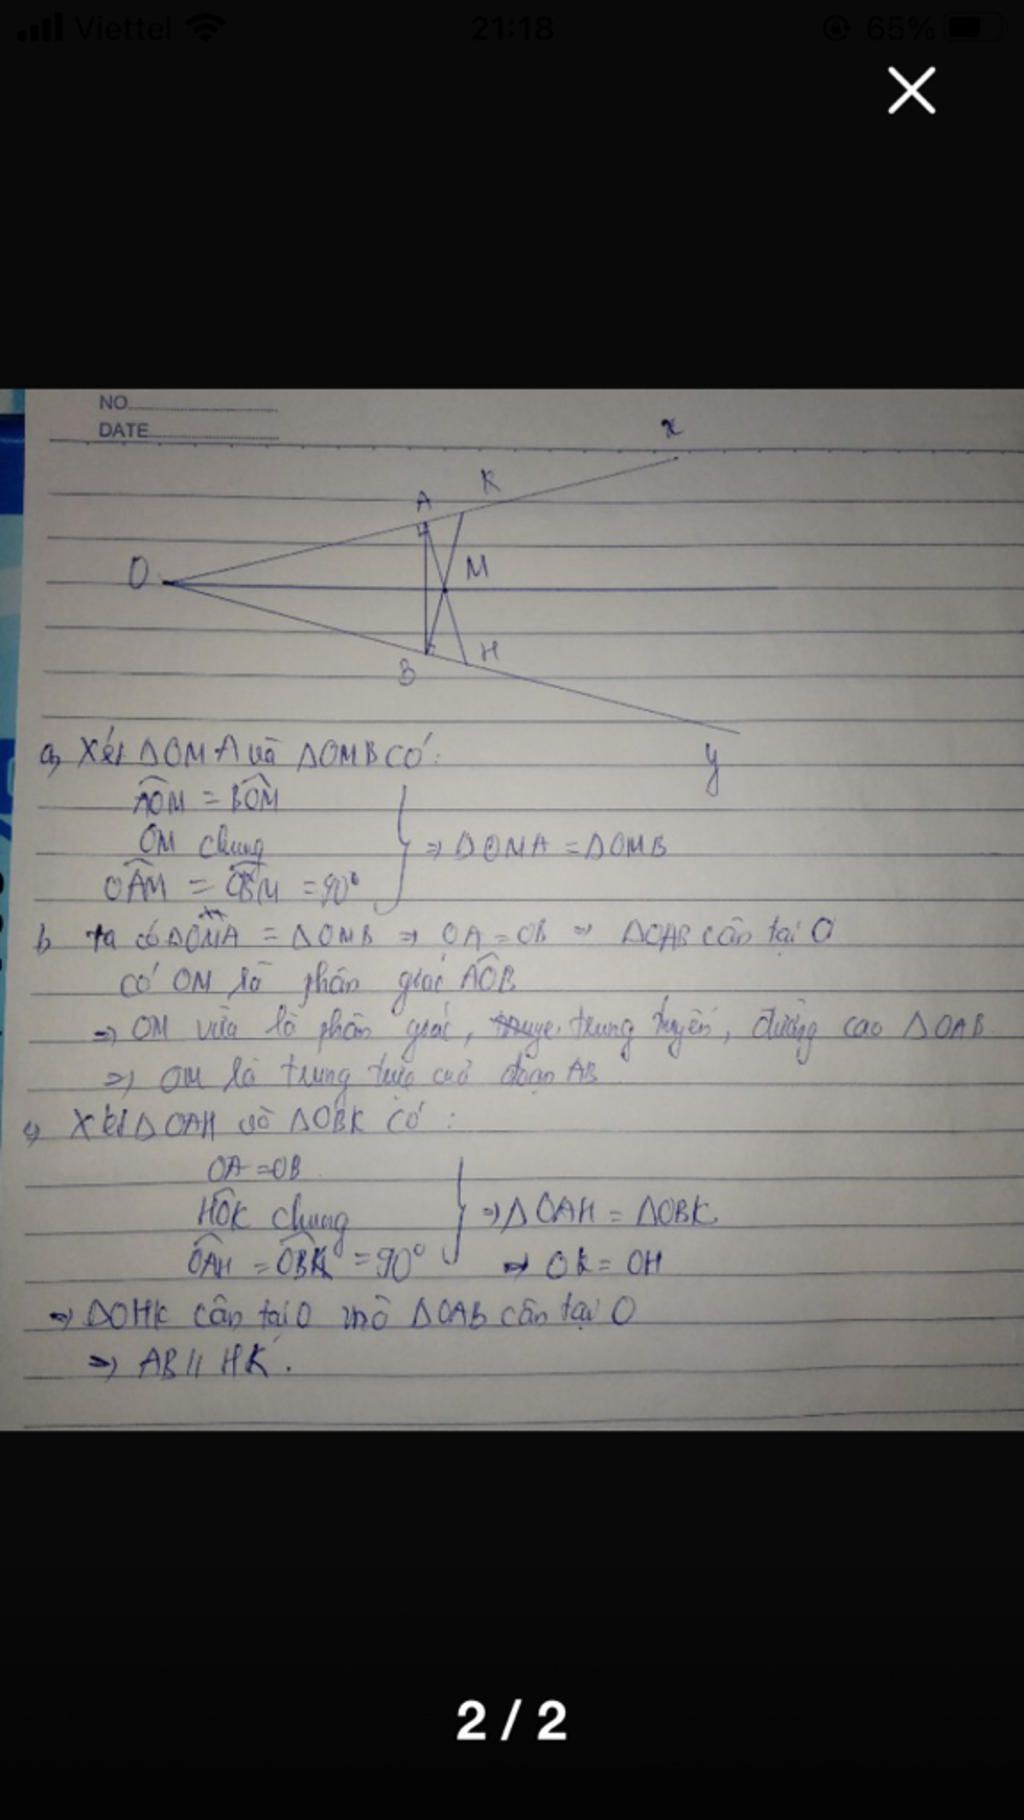 Viettel 21:18 65%
NO.
DATE
x
A K
O M
B H
y
a, Xét ΔOMA và ΔOMB có:
AOM = BOM
OM chung
OAM = OBM = 90° } ⇒ ΔOMA = ΔOMB
b Ta có ΔOMA = ΔOMB ⇒ OA = OB ⇒ ΔOAB cân tại O
có OM là phân giác AOB
⇒ OM vừa là phân giác, trung tuyến, đường cao ΔOAB
⇒ OM là trung trực của đoạn AB
c, Xét ΔOAH và ΔOBK có:
OA = OB
HOK chung } ⇒ ΔOAH = ΔOBK
OAH = OBK = 90° ⇒ OK = OH
⇒ ΔOHK cân tại O mà ΔOAB cân tại O
⇒ AB // HK.
2 / 2